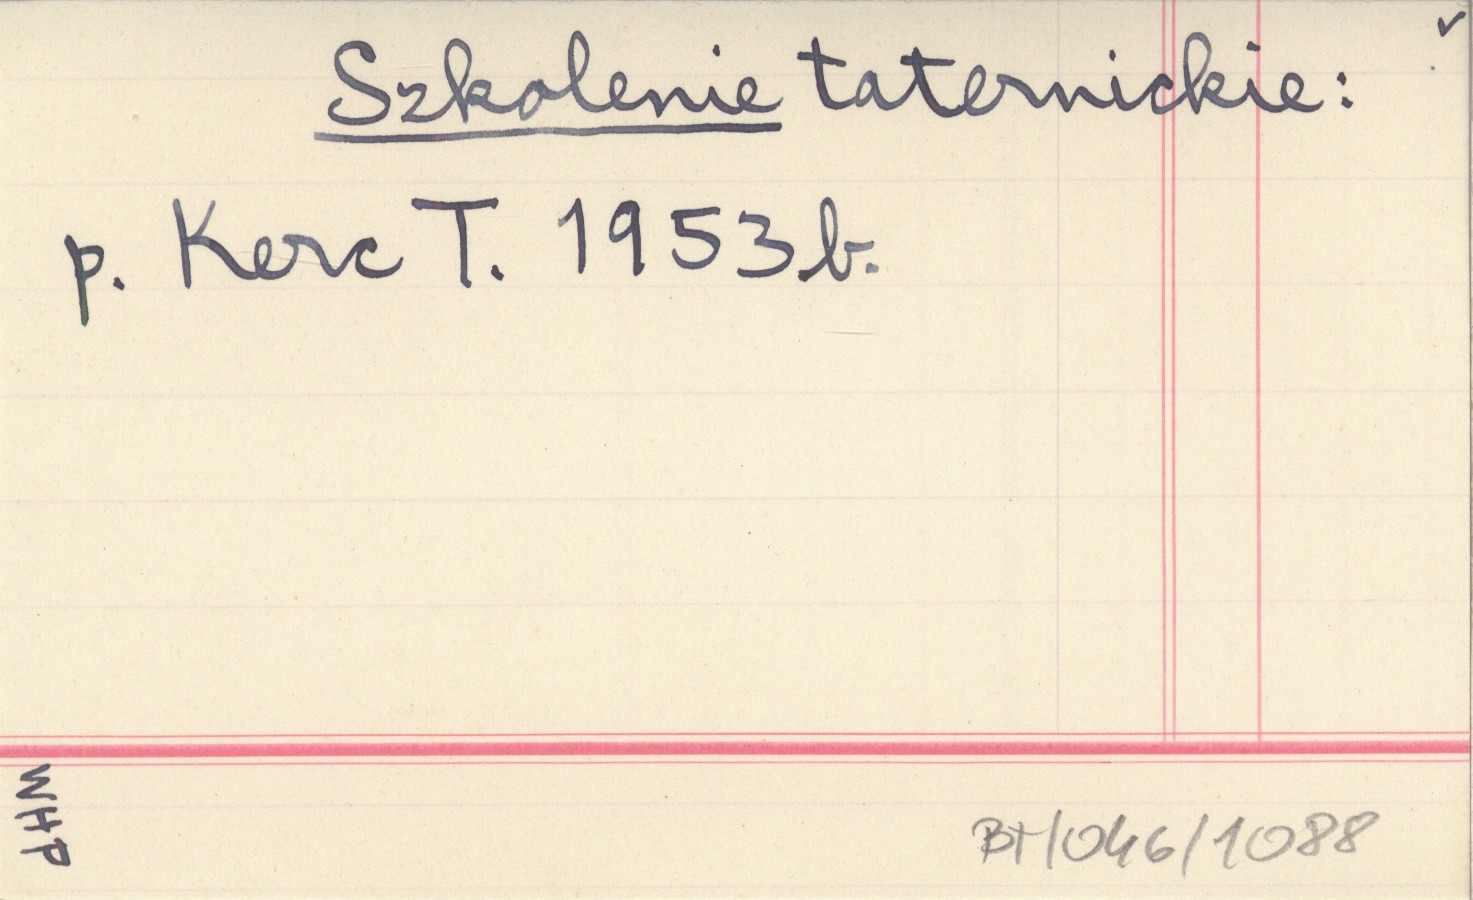 ✓
Szkolenie taternickie:
p. Kerc T. 1953.b.
WHP
BT/046/1088